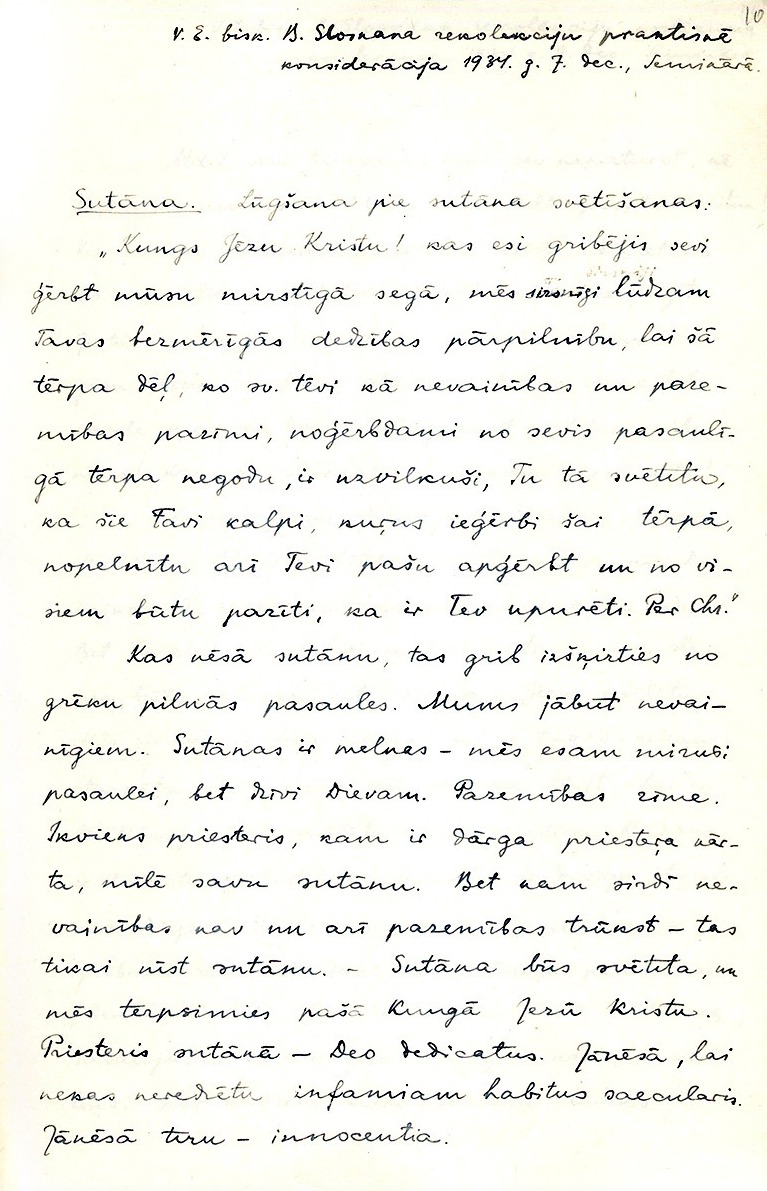 10
V. E. bisk. B. Sloskana rekolekciju praktiskā
konsiderācija 1934. g. 7. dec., Seminārā.
Sutāna. Lūgšana pie sutāna svētīšanas:
„Kungs Jēzu Kristu! kas esi gribējis sevi
ģērbt mūsu mirstīgā segā, mēs sirsnīgi lūdzam
Tavas bezmērīgās dedzības pārpilnību, lai šā
tērpa dēļ, ko sv. tēvi kā nevainības un paze-
mības pazīmi, noģērbdami no sevis pasaulī-
gā tērpa negodu, ir uzvilkuši, Tu tā svētītu,
ka šie Tavi kalpi, kuŗus ieģērbi šai tērpā,
nopelnītu arī Tevi pašu apģērbt un no vi-
siem būtu pazīti, ka ir Tev upurēti. Per Chr."
Kas nēsā sutānu, tas grib izšķirties no
grēku pilnās pasaules. Mums jābūt nevai-
nīgiem. Sutānas ir melnas – mēs esam miruši
pasaulei, bet dzīvi Dievam. Pazemības zīme.
Ikviens priesteris, kam ir dārga priesteŗa kār-
ta, mīlē savu sutānu. Bet kam sirdī ne-
vainības nav un arī pazemības trūkst – tas
tikai nīst sutānu. – Sutāna būs svētīta, un
mēs tērpsimies pašā Kungā Jezū Kristu.
Priesteris sutānā – Deo dedicatus. Jānēsā, lai
nekas neredzētu infamiam habitus saecularis.
Jānēsā tīru – innocentia.